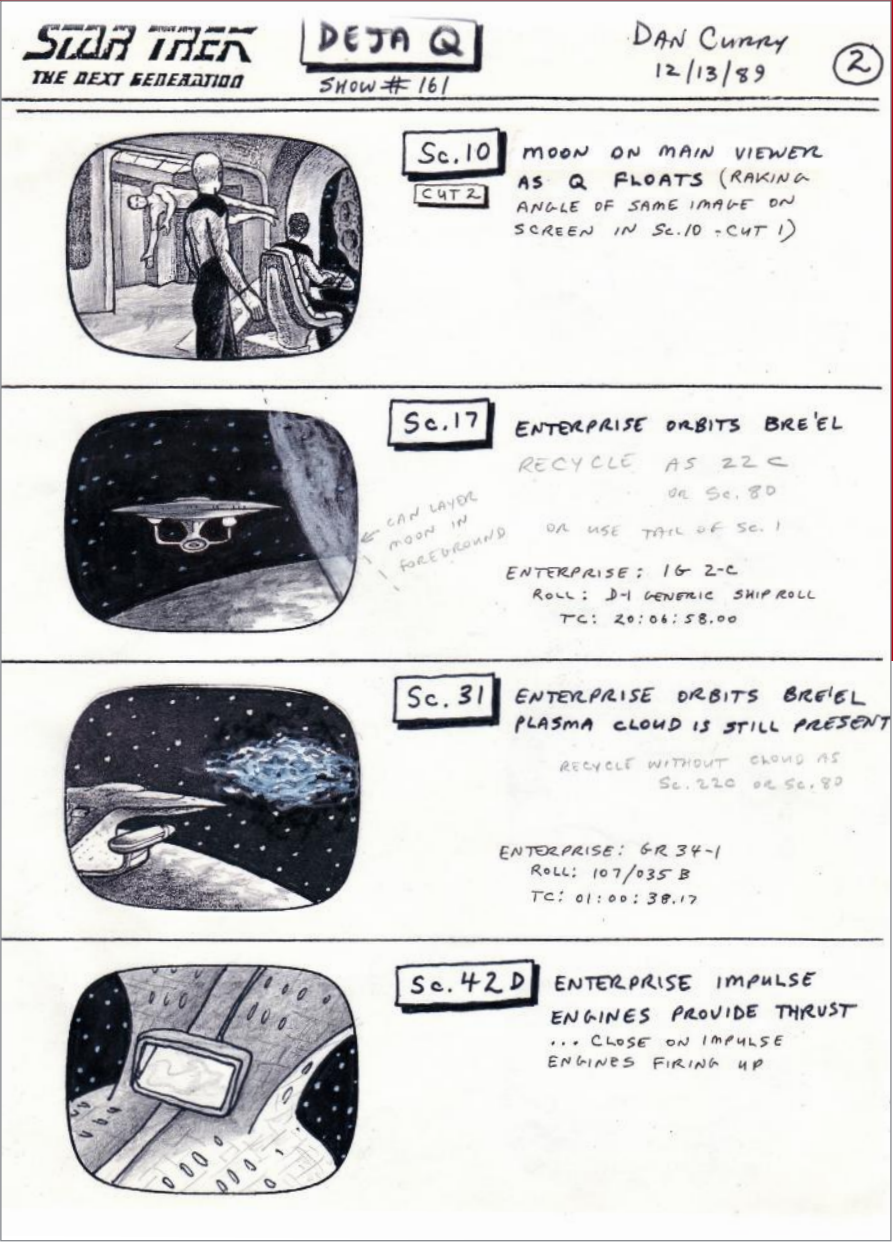 STAR TREK
THE NEXT GENERATION
DEJA Q
SHOW # 161
DAN CURRY
12/13/89
2
Sc.10
CUT 2
MOON ON MAIN VIEWER
AS Q FLOATS (RAKING
ANGLE OF SAME IMAGE ON
SCREEN IN Sc.10 - CUT 1)
Sc.17
ENTERPRISE ORBITS BRE'EL
RECYCLE AS 22 C
OR Sc. 80
OR USE TAIL OF Sc. 1
CAN LAYER
MOON IN
FOREGROUND
ENTERPRISE: 1G 2-C
ROLL: D-1 GENERIC SHIP ROLL
TC: 20:06:58.00
Sc. 31
ENTERPRISE ORBITS BRE'EL
PLASMA CLOUD IS STILL PRESENT
RECYCLE WITHOUT CLOUD AS
Sc. 22C OR Sc. 80
ENTERPRISE: GR 34-1
ROLL: 107/035 B
TC: 01:00:38.17
Sc. 42 D
ENTERPRISE IMPULSE
ENGINES PROVIDE THRUST
... CLOSE ON IMPULSE
ENGINES FIRING UP